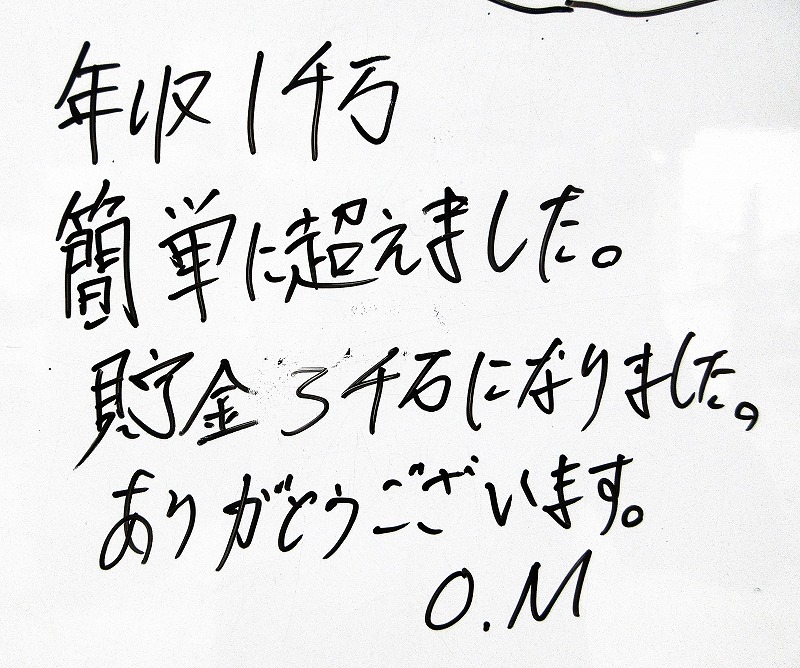 年収1千万
簡単に超えました。
貯金3千万になりました。
ありがとうございます。
O.M